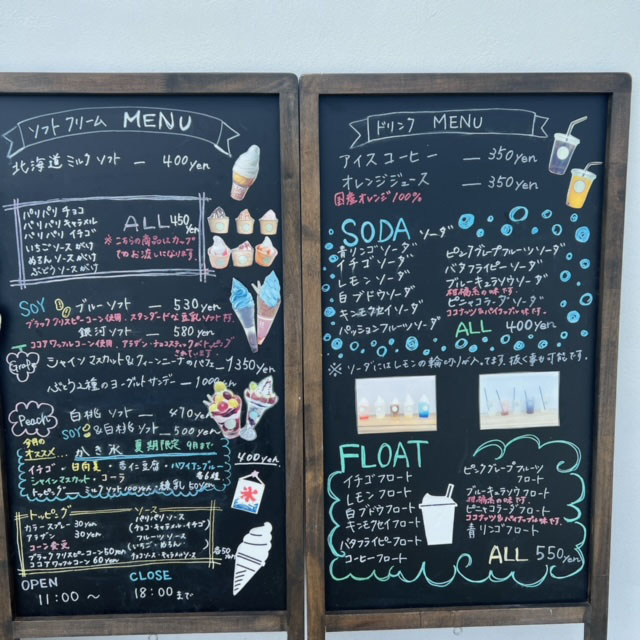 ソフトクリーム MENU
北海道ミルクソフト ー 400yen
パリパリ チョコ
パリパリ キャラメル
パリパリ イチゴ
いちごソースがけ
めろんソースがけ
ぶどうソースがけ
ALL 450yen
※こちらの商品はカップ
でのお渡しになります。
SOY ブルーソフト ー 530yen
ブラッククリスピーコーン使用、スタンダードな豆乳ソフトです。
銀河ソフト ー 580yen
ココアワッフルコーン使用、アラザン・チョコスティックがトッピング
されています
Grape シャインマスカット&フィーンニーナのパフェ 1350yen
ぶどう2種のヨーグルトサンデー ー 1000yen
Peach 白桃ソフト ー 470yen
SOY 白桃ソフト ー 500yen
今月の
オススメ...
かき氷 夏期限定 9月まで
400yen
イチゴ・日向夏・杏仁豆腐・ハワイアンブルー
シャインマスカット・コーラ 各6種
トッピング ミルクソフト100yen 練乳50yen
氷
トッピング
カラースプレー 30yen
アラザン 30yen
コーン変更
ブラッククリスピーコーン 50yen
ココアワッフルコーン 60yen
ソース
パリパリソース
(チョコ・キャラメル・イチゴ)
フルーツソース
(いちご・めろん
チョコソース・キャラメルソース
各50yen
OPEN
11:00 〜
CLOSE
18:00まで
ドリンク MENU
アイスコーヒー ー 350yen
オレンジジュース ー 350yen
国産オレンジ100%
SODA ソーダ
青リンゴソーダ
イチゴソーダ
レモンソーダ
白ブドウソーダ
キンモクセイソーダ
パッションフルーツソーダ
ピンクグレープフルーツソーダ
バタフライピーソーダ
ブルーキュラソウソーダ
柑橘系の味です。
ピニャコラーダソーダ
ココナッツ&パイナップル味です。
ALL 400yen
※ソーダにはレモンの輪切りが入ってます。抜く事も可能です。
FLOAT
イチゴフロート
レモンフロート
白ブドウフロート
キンモクセイフロート
バタフライピーフロート
コーヒーフロート
ピンクグレープフルーツ
フロート
ブルーキュラソウフロート
柑橘系の味です。
ピニャコラーダフロート
ココナッツ&パイナップル味です。
青リンゴフロート
ALL 550yen